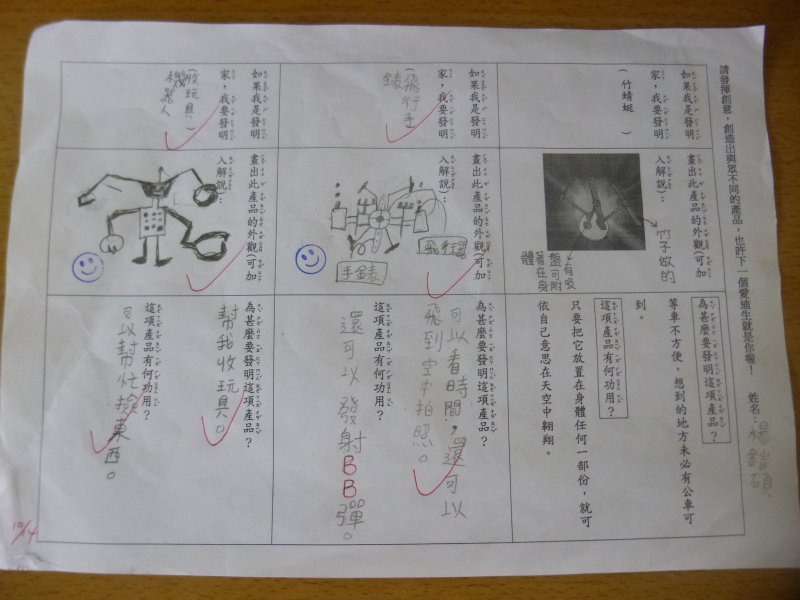 請發揮創意，創造出與眾不同的產品，也許下一個愛迪生就是你喔！
姓名：楊鎧碩
如果我是發明
家，我要發明
（竹蜻蜓）
畫出此產品的外觀(可加
入解說)：
竹子做的
有吸
盤可附
著在身
體
為甚麼要發明這項產品？
等車不方便，想到的地方未必有公車可
到。
這項產品有何功用？
只要把它放置在身體任何一部份，就可
依自己意思在天空中翱翔。
如果我是發明
家，我要發明
（飛行手
錶）
畫出此產品的外觀(可加
入解說)：
飛行器
手金錶
為甚麼要發明這項產品？
可以看時間，還可以
飛到空中拍照。
這項產品有何功用？
還可以發射BB彈。
如果我是發明
家，我要發明
（收玩具
機器人）
畫出此產品的外觀(可加
入解說)：
為甚麼要發明這項產品？
幫我收玩具。
這項產品有何功用？
可以幫忙撿東西。
10/14